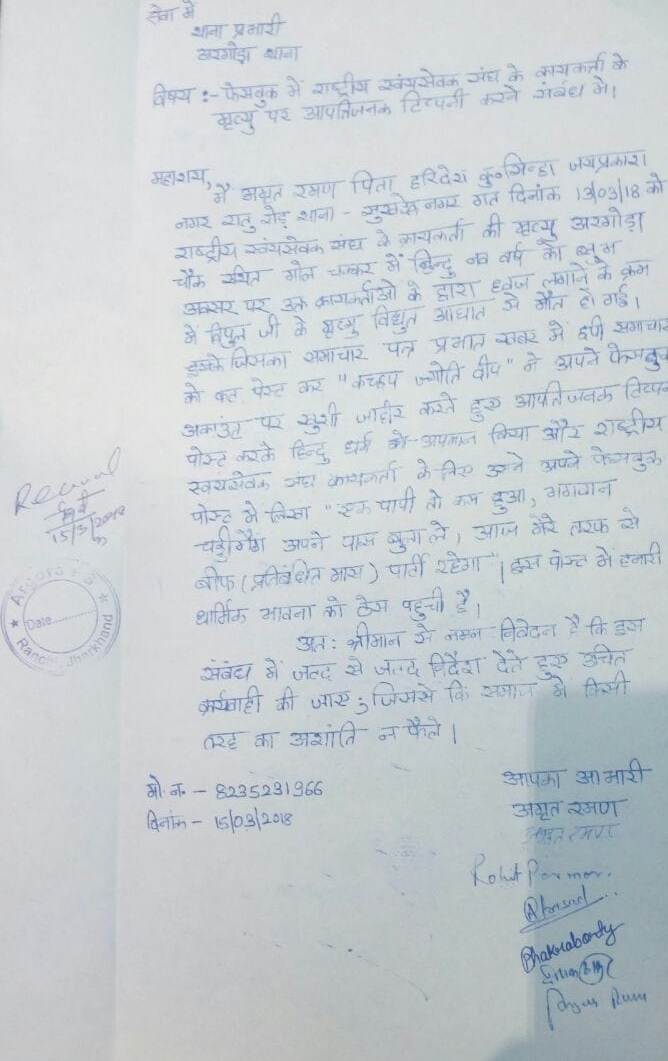 सेवा में
थाना प्रभारी
अरगोड़ा थाना
विषय :- फेसबुक में राष्ट्रीय स्वंयसेवक संघ के कार्यकर्ता के
मृत्यु पर आपतिजनक टिप्पनी करने संबंध में।
महाशय,
मै अमृत रमण पिता हरिदेश कु० सिन्हा जयप्रकाश
नगर रातु रोड़ थाना - सुखदेव नगर गत दिनांक 13/03/18 को
राष्ट्रीय स्वंयसेवक संघ के कार्यकर्ता की मृत्यु अरगोड़ा
चौक स्थित गोल चक्कर में हिन्दु नव वर्ष के
अवसर पर उक्त कार्यकर्ताओ के द्वारा ध्वज लगाने के क्रम
में विपुल जी के मृत्यु विद्युत आघात से मौत हो गई।
इसके जिसका समाचार पत्र प्रभात खबर में छपी समाचार
को पोस्ट कर "कच्छप ज्योति दीप" ने अपने फेसबुक
अकाउंट पर खुशी जाहीर करते हुए आपतिजनक टिप्पन
पोस्ट करके हिन्दु धर्म को अपमान किया और राष्ट्रीय
स्वयंसेवक संघ कार्यकर्ता के लिए उसने अपने फेसबुक
पोस्ट में लिखा "एक पापी तो कम हुआ, भगवान
चड्डीगैंग अपने पास बुला ले, आज मेरे तरफ से
बीफ (प्रतिबंधित मास) पार्टी रहेगा"। इस पोस्ट में हमारी
धार्मिक भावना को ठेस पहुची है।
अत: श्रीमान से नम्न निवेदन है कि इस
संबंध में जल्द से जल्द निर्देश देते हुए उचित
कार्यवाही की जाए; जिससे कि समाज में किसी
तरह का अशांति न फैले।
15/3/2018
Argora
Date
Ranchi, Jharkhand
मो. न. - 8235231966
दिनांक - 15/03/2018
आपका आभारी
अमृत रमण
अमृत रमण
Rohit Parmar.